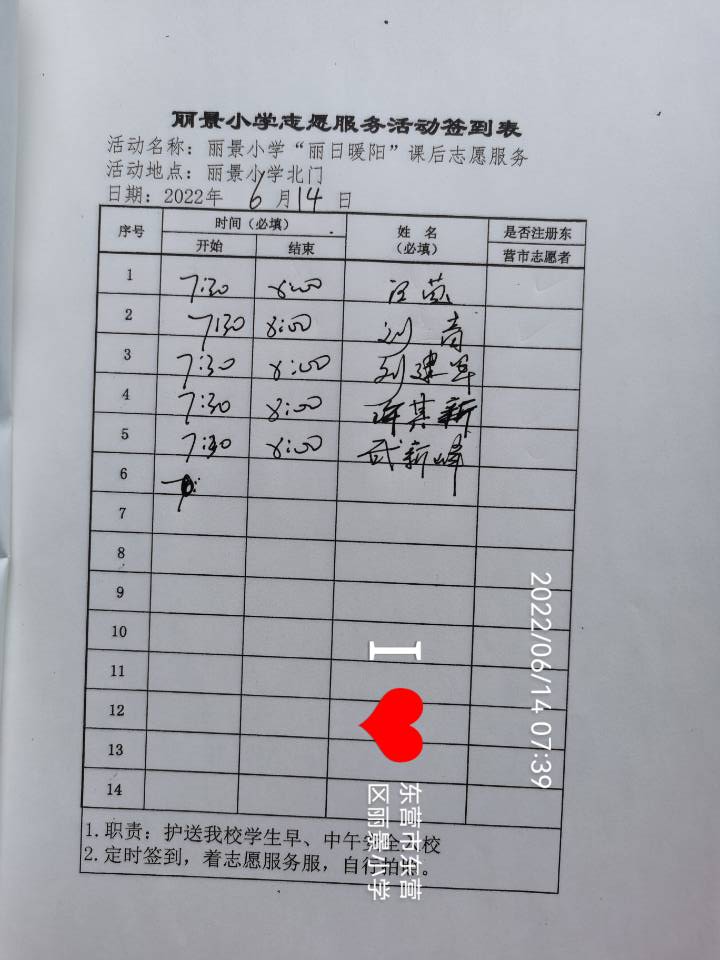 丽景小学志愿服务活动签到表
活动名称：丽景小学“丽日暖阳”课后志愿服务
活动地点：丽景小学北门
日期：2022年 6 月 14 日
序号 时间（必填） 姓 名（必填） 是否注册东营市志愿者
开始 结束
1 7:30 8:00
2 7:30 8:00 刘青
3 7:30 8:00 刘建军
4 7:30 8:00 其新
5 7:30 8:00 武新峰
6
7
8
9
10
11
12
13
14
1.职责：护送我校学生早、中午安全入校
2.定时签到，着志愿服务服，自行拍照。
2022/06/14 07:39
I
东营市东营
区丽景小学